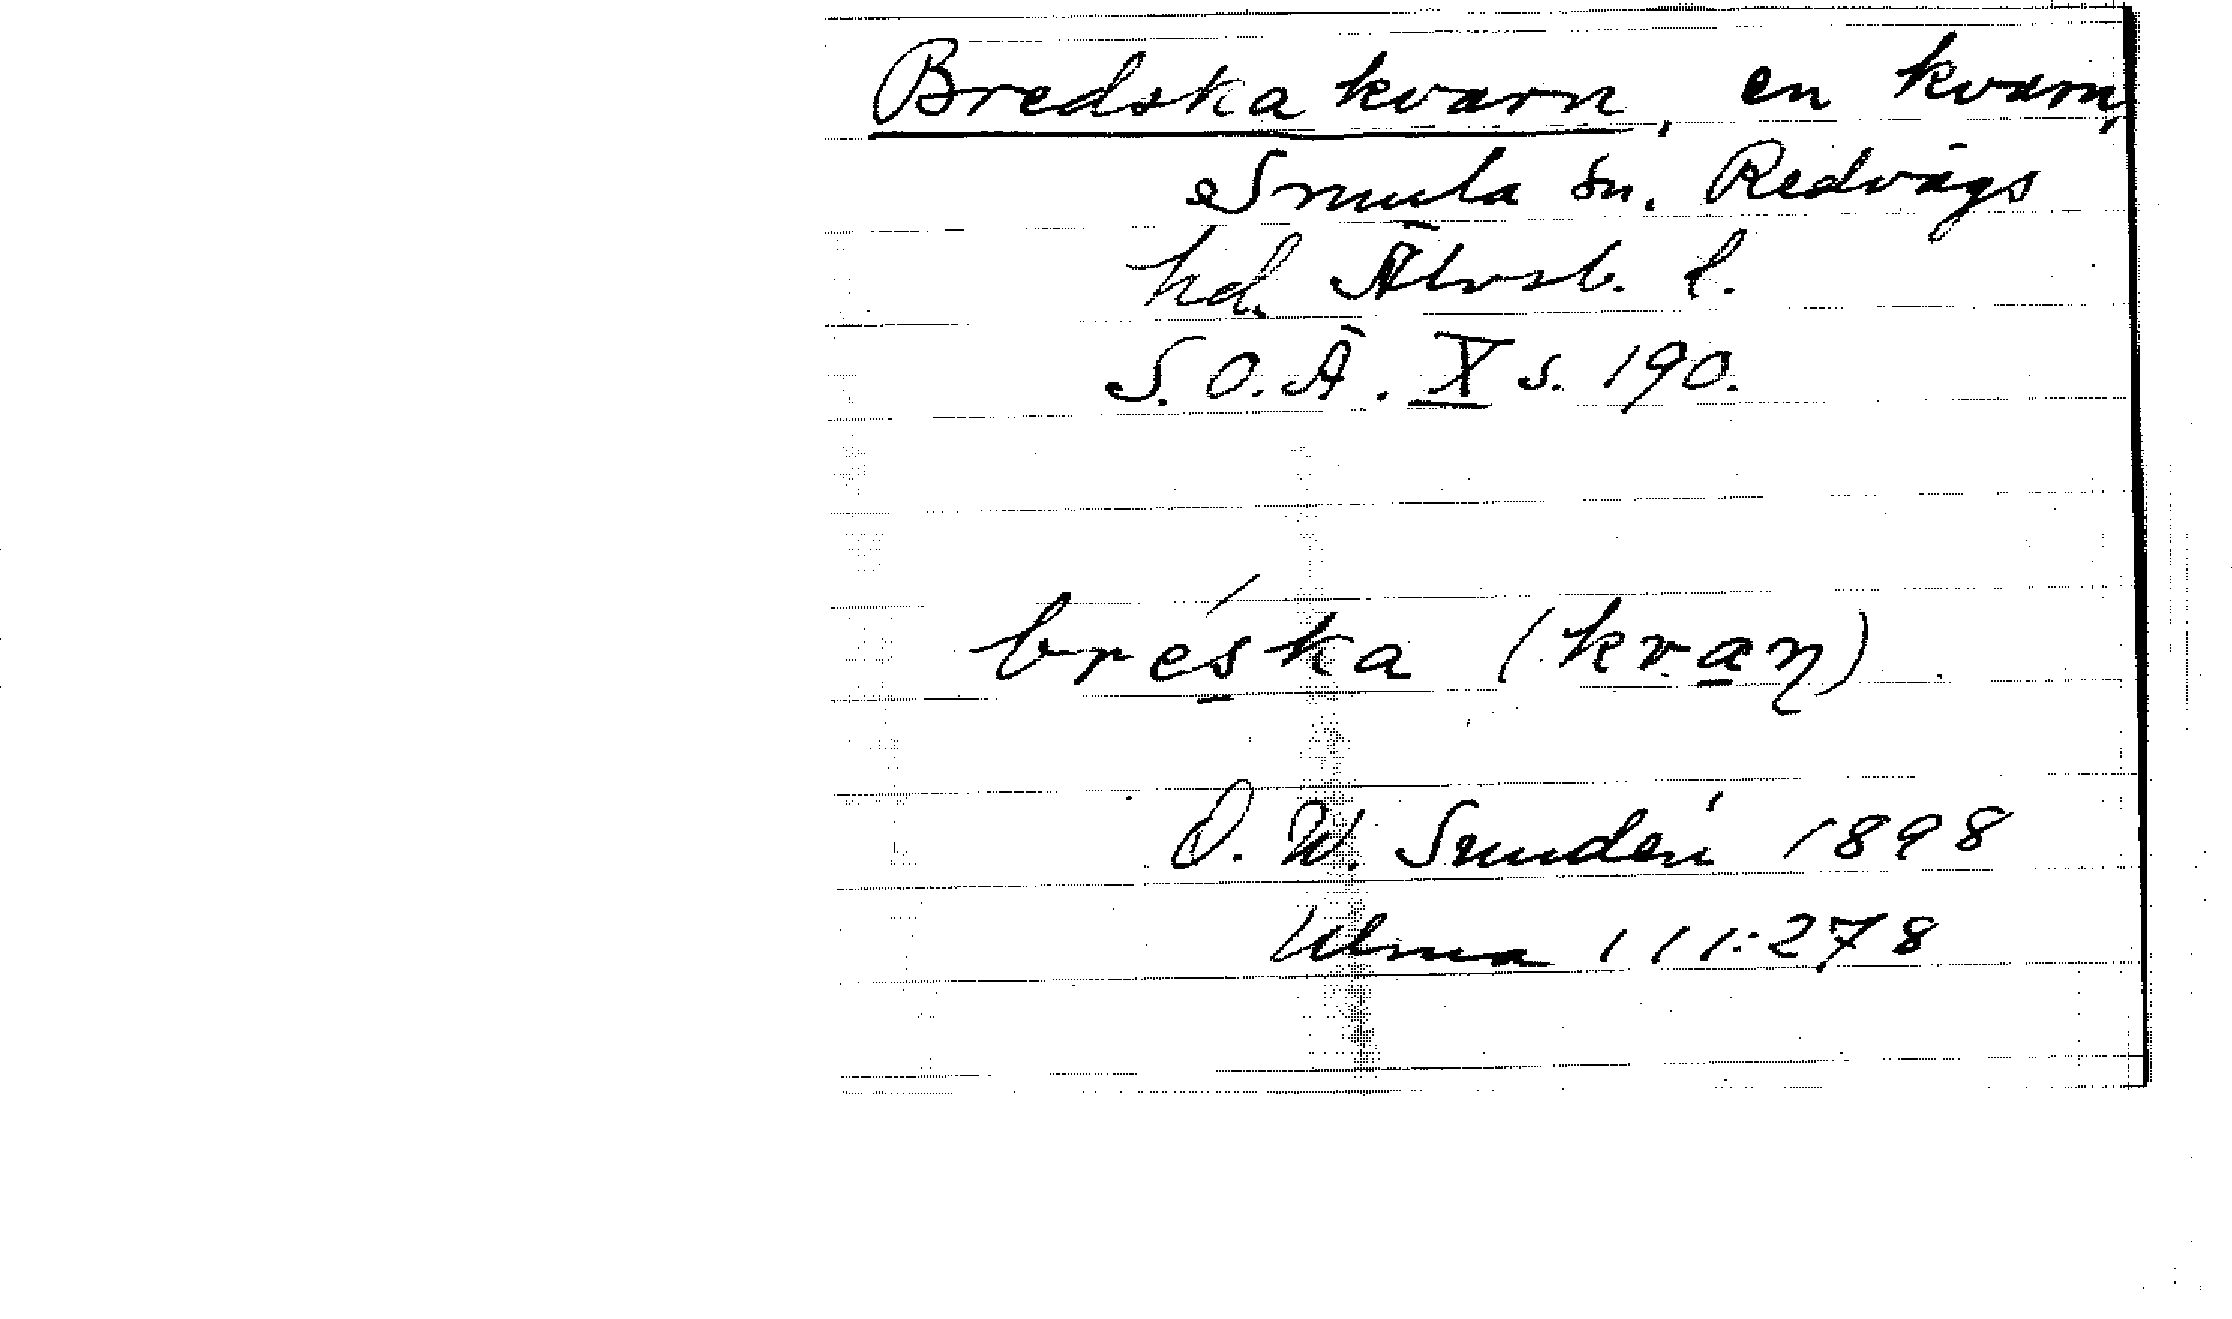 Bredska kvarn, en kvarn,
Smula sn. Redvägs
hd. Älvsb. l.
S.O.Ä. X s. 190.
bréska (kvaɳ)
D. W. Sundén 1898
Ulma 111:278